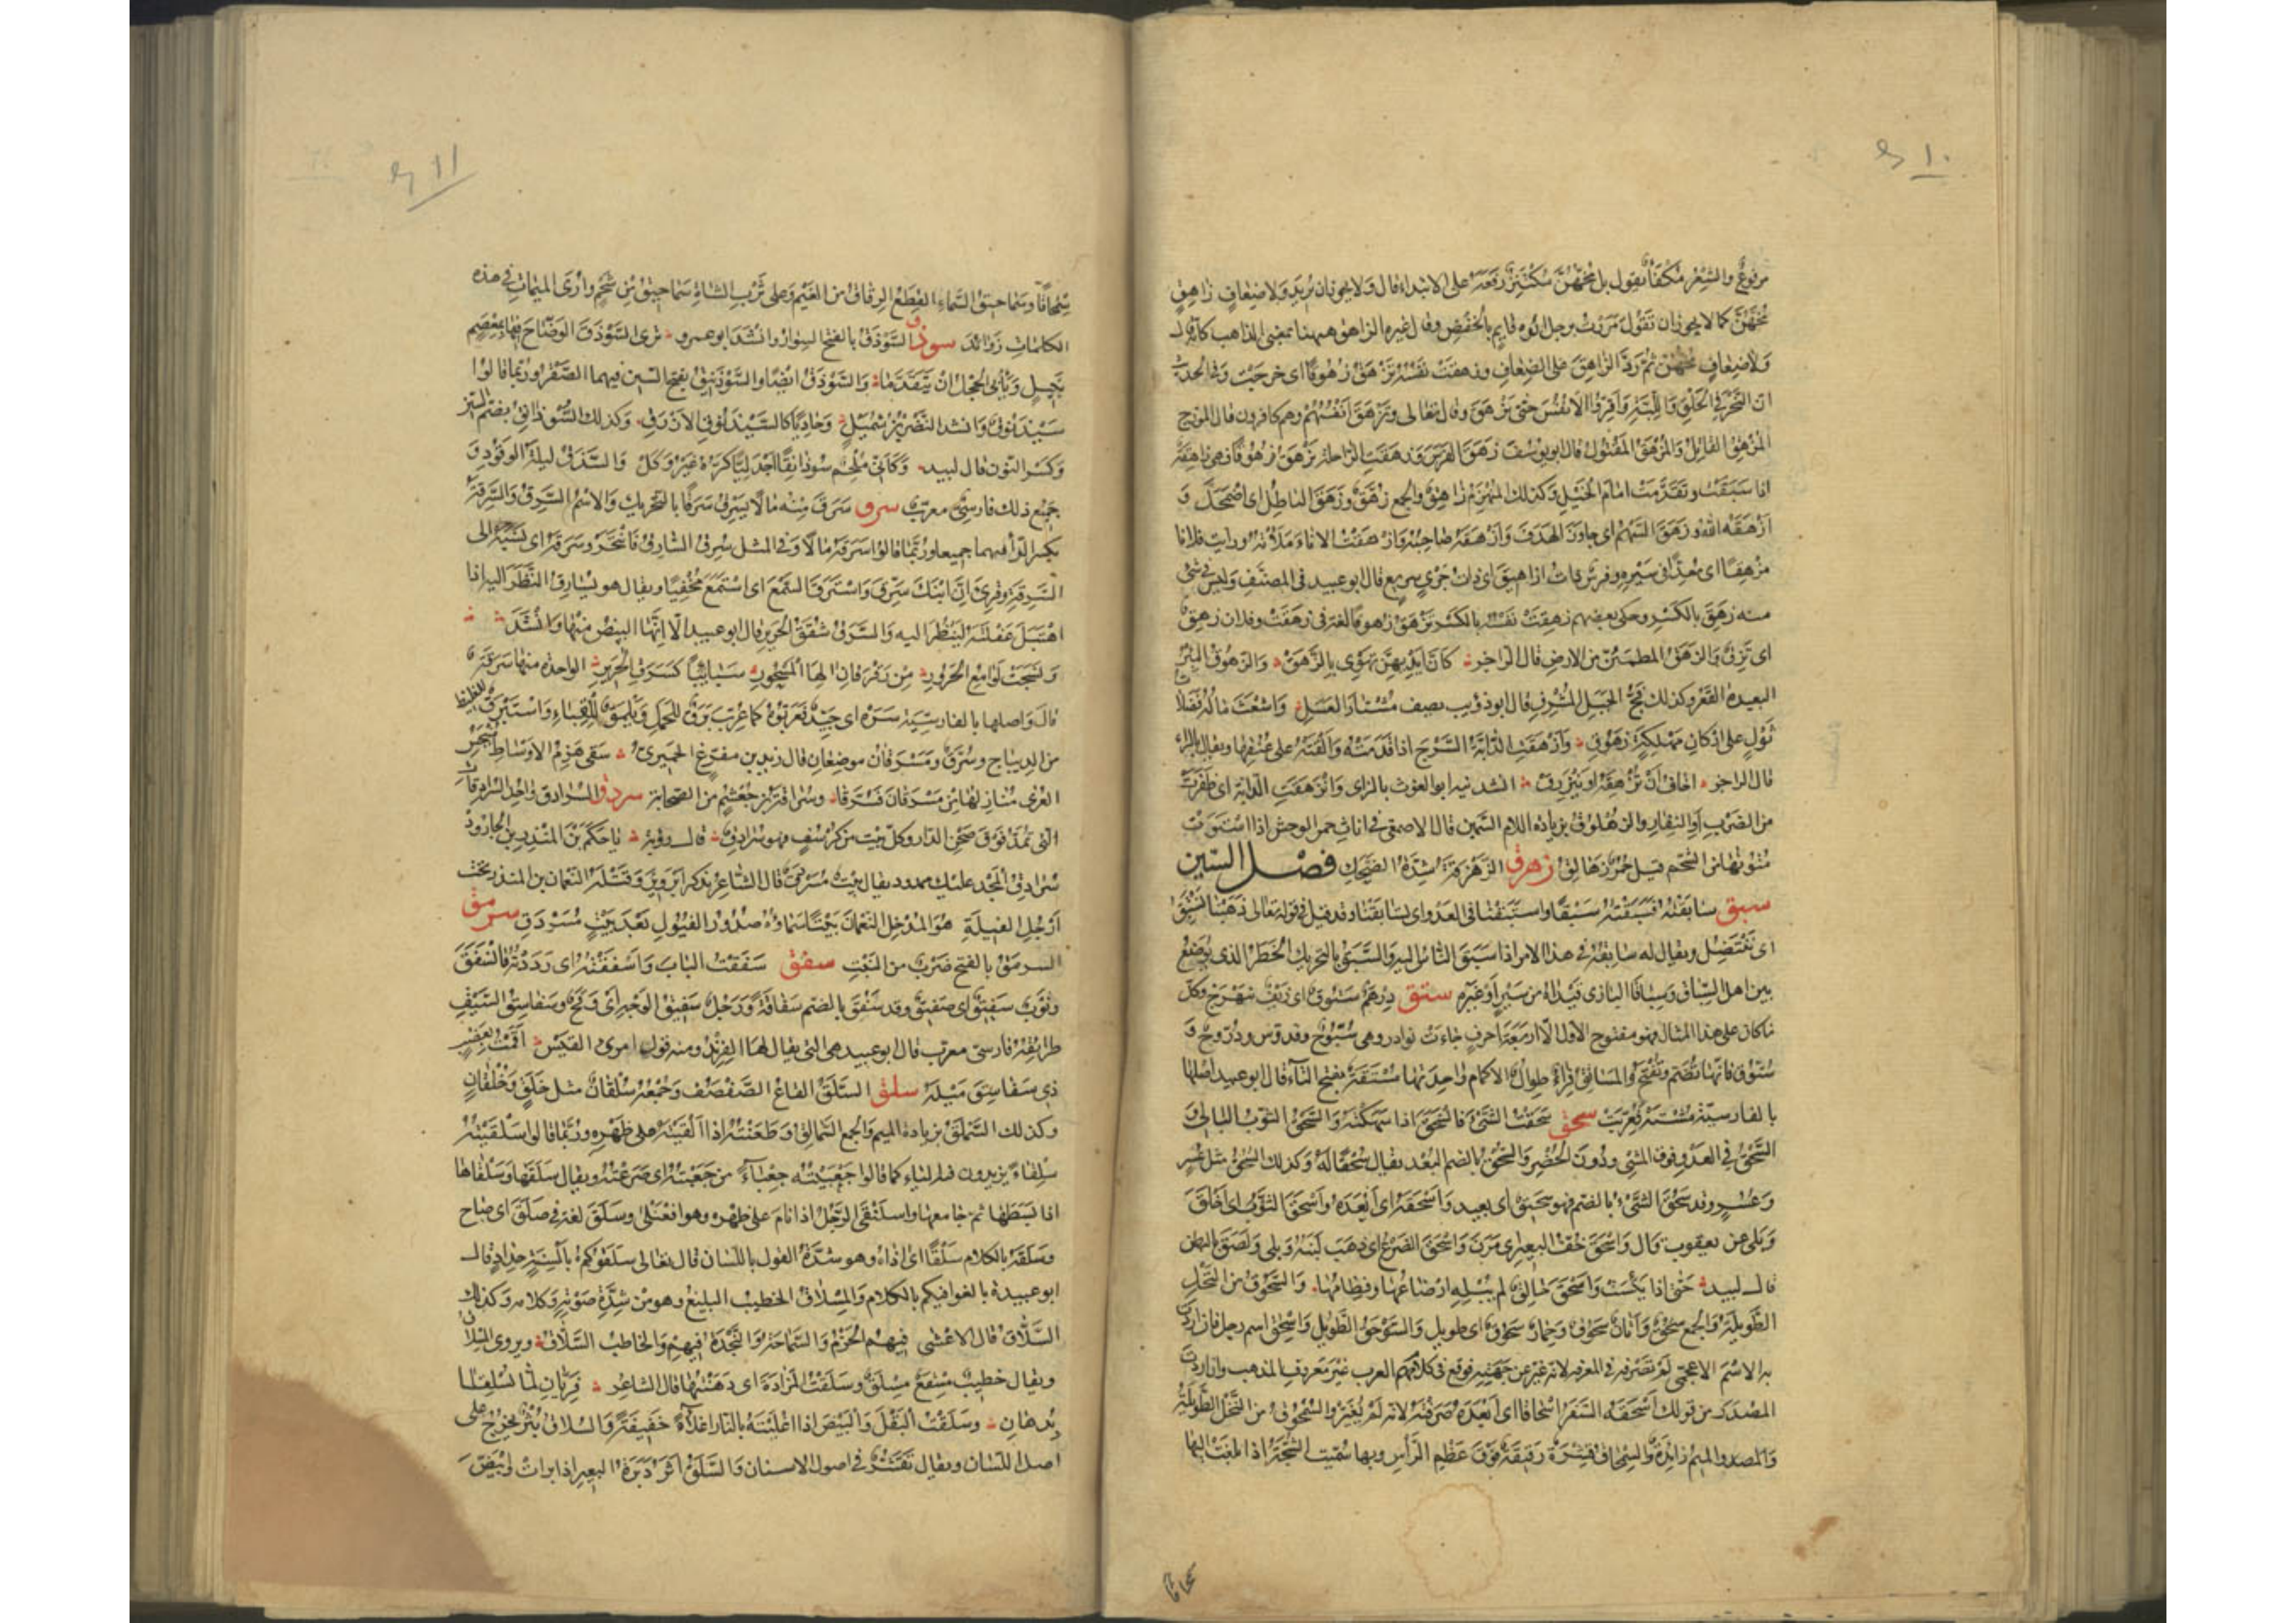 ١٠
مرفوعٌ والشِعْر مُكْفَأ يقول بل مُخّهُنَّ مُكْتَنِزٌ رَفَعَهُ على الابتداء قال ولا يجوز ان يُريد وَلا ضِعافٍ زاهِقٍ
مُخّهُنَّ كما لا يجوز ان تقول مَرَرْت برجلٍ ابُوه قايمٍ بالخفض وقال غيره الزاهق ههنا بمعنى الذاهب كانّه قال
وَلا ضِعافٍ مُخّهُنّ ثم رَدَّ الزاهِقَ على الضِعافِ وزهقت نفسُهُ تَزْهَقُ زُهُوقًا اى خرجَت وفى الحديث
ان النَحْرَ فى الحَلْقِ وَاللَّبَّةِ وَاَقِرّوا الانفُسَ حتى تَزْهَقَ وقال تعالى وَتَزْهَقَ اَنْفُسُهُمْ وهم كافرون قال المورّج
المُزْهِق القاتِل وَالمُزْهَق المَقْتُول قال ابو يوسُف زَهَقَ الفرس وزهقتِ الراحلة تزهَق زُهُوقًا فهى زاهِقَة
اذا سَبَقَت وتقدَّمَت امَامَ الخَيْلِ وكذلك المُنهَزِم زاهِق والجمع زُهَّق وَزَهَقَ الباطِل اى اضْمَحَلَّ وَ
اَزْهَقَه اللّه وزَهَقَ السَهْم اى جاوَزَ الهَدَفَ وَاَزْهَقَهُ صاحِبُه وَاَزْهَقْت الاناءَ مَلَأْتُه ورأيت فلانا
مُزْهِقًا اى مُغِذًّا فى سَيْرِه وفرسٌ ذات ازاهِيقَ اى ذات جَرْىٍ سريع قال ابو عبيد فى المصنّف وليس فى شئ
منه زهِقَ بالكَسْر وحكى بعضهم زهِقَتْ نَفْسُه بالكسْر تَزْهَق زُهوقًا لغة فى زهَقَتْ وفلان زهِقٌ
اى نَزِقٌ وَالزَهَقُ المطمئنّ من الارضِ قال الراجز كانّ اَيْدِيهِنَّ تَهْوِى بالزَهَقْ وَالزَهُوق البئرُ
البعيدة القَعْر وكذلك فَجُّ الجَبَلِ المُشْرِفِ قال ابو ذؤيب يصف مُشْتارَ العَسَلِ وَاشْعَثَ مالُه فَضَلات
ثَوْلٍ على اركانِ مَهْلكةٍ زَهُوقِ وَاَزْهَقَتِ الدابّة السَّرْجَ اذا قدّمَتْه وَالْقَتْهُ على عُنُقِها ويقال بالراء
قال الراجز اخاف اَنْ تُزْهِقَه او يَنْزَرِق انشدنيه ابو الغوث بالزاى وَانْزَهَقَتِ الدابة اى طَفَرَتْ
من الضَرْبِ اَوِ النِفارِ والزهْلوق بزيادة اللام السَمين قال الاصمعى فى اناث حمر الوحش اذا اسْتَوَتْ
مُتُونُها من الشَّحْم قيل حُمُرٌ زَهالِقُ زهرق الزَهْزَقَة شِدَّةُ الضَّحِكِ فصل السّين
سبق سابَقتُه فَسَبَقْتُه سَبْقًا واستَبَقْنا فى العَدْوِ اى تسابَقْنا وقد قيل فى قوله تعالى ذَهَبْنا نَسْتَبِق
اى نَنْتَضِل ويقال له سابِقَة فى هذا الامر اذا سَبَقَ النّاس اليه والسَّبَقُ بالتحريك الخَطَرُ الذى يُوضَع
بين اهل السِّباق وسِباقا البازى قَيْداهُ من سَيْرٍ اَوْ غَيره ستق دِرْهَمٌ سَتُّوقٌ اى زَيْف بَهْرَج وكلّ
ما كان على هذا المثال فهو مفتوح الاول الّا اربعَة احرفٍ جاءَت نوادر وهى سُبّوح وقدّوس وذُرّوح وَ
سُتّوق فانّها تُضَم وتُفْتَح والمساتِق فِراءٌ طِوال الاكمام واحِدَتها مُسْتَقَة بفتح التّاء قال ابو عبيد اصلها
بالفارسية مُشْتَه فعُرِّبَت سحق سَحَقتُ الشّئ فانْسَحَقَ اذا سَهَكْتَه وَالسَّحْق الثوب البالى وَ
السَّحْق فى العَدْو فوق المشى ودُونَ الحُضْرِ والسُحْق بالضم البُعْد يقال سُحْقًا لَهُ وكذلك السُحُق مثل عُسْر
وَعُسُرٍ وقد سَحُقَ الشئ بالضم فهو سَحِيق اى بعيد وَاَسْحَقَه اى اَبْعَدَه وَاَسْحَقَ الثوْب اى اخْلَقَ
وَبَلِىَ عن يعقوب قال وَاَسْحَقَ خُفّ البعيرِ اى مَرَنَ وَاَسْحَقَ الضَرْع اى ذهَبَ لَبَنُه وَبَلِىَ ولَصَقَ بالبطن
قال لبيد حَتّى اذا يَئِسَتْ وَاسْحَقَ حَالِقٌ لم يُبْلِهِ ارْضاعُها وفِطامُها وَالسَّحوق من النَّخْلِ
الطويلة وَالجمع سُحُق وَاَتانٌ سَحُوق وحِمارٌ سَحُوق اى طويل وَالسَوْحَق الطَّوِيل وَاِسْحٰق اسم رجل فان اردْتَ
به الاسْمَ الاعجمىّ لَمْ تَصْرِفه فى المعرفه لانه غُيّر عن جهَتِه فوقع فى كلامهم العرب غيْرَ مَعرُوف المذهب وان اردت
المصْدَر من قولك اَسْحَقَه السَّفَر اسْحاقًا اى اَبْعَدَه صَرَفْتَه لانه لَمْ يُغَيَّر والسُّمْحُوق من النَخْل الطَّوِيلَة
وَالمصدر والميم زائدة وَالسِمْحاق قِشْرَة رَقِيقَة فَوْقَ عَظْمِ الرَّأْسِ وبها سُمِّيت الشَجَّة اذا بَلَغَتْ اليها
سمحاقا
١١
سِمْحاقًا وسَماحيقُ السَّماءِ القِطَعُ الرِقاق من الغَيْمِ وعلى ثَرْبِ الشاةِ سَماحِيقُ من شَحْمٍ وارَى الميمات فى هذه
الكلماتِ زَوائدَ سوذق السَّوْذَق بالفتح السِوار وانشَدَ ابو عمرو ترى السَّوْذَقَ الوَضّاحَ فيها بمِعْصَمٍ
نَبيلٍ وَيأبى الحِجْلُ اَنْ يَتقدَّمَا وَالسَّوْذَق ايضًا والسَّوْذَنِيق بفتح السّين فيهما الصَّقْر وربّما قالوا
سَيْذَنُوق وَانشد النَّضْرُ بن شُمَيْلٍ وَحادِيًا كالسَّيْذَنُوقِ الاَزْرَقِ وكذلك السُّوذانِق بضم السّين
وَكَسْر النّون قال لبيد وَكَانّى مُلْجِم سُوذانِقًا اَجْدَلِيًّا كَرُّهُ غَيْرُ وَكَلْ وَالسَّذَق ليلة الوقود وَ
جَميع ذلك فارسىّ معرّب سرق سَرَقَ مِنه مالًا يَسرِق سَرَقًا بالتحريك وَالاسْم السَّرِق وَالسَّرِقَة
بكسر الرّاء فيهما جميعا وربّما قالوا سَرَقَه مالًا وَفى المثل سُرِق السّارِق فَانْتَحَرَ وسَرَّقَهُ اى نَسَبَهُ الى
السَّرِقَةِ وقُرِئَ اِنَّ ابْنَكَ سُرِّقَ وَاسْتَرَقَ السَّمْعَ اى اسْتَمَعَ مُخْتَفِيًا ويقال هو يُسارِق النَّظَرَ اليه اذا
اهْتَبَلَ غَفْلَتَه ليَنظُر اليه وَالسَّرَق شُقَقُ الحَرير قال ابو عبيد الّا انّها البِيضُ منها وَانْشَدَ
وَنَسَجَتْ لَوامِع الحَرُورِ مِنْ رَقْرَقان آلِها المَسْجورِ سَبائِبًا كَسَرَقِ الحَرِيرِ الواحدة منها سَرَقَة
قالَ وَاصلها بالفارسِيّة سَرَه اى جَيّد فَعَرّبُوه كما عُرِّبَ بَرَقٌ للحَمَلِ وَيَلْمَق لِلْقَباءِ وَاسْتَبْرَق للغليظ
من الدِيباج وسُرَّق وَمَسْرَقان موضِعان قال يزيد بن مفرّغ الحميرى سَقَى هَزِمُ الاَوْساطِ مُنْبَجِسُ
العُرَى مَنازِلَها مِن مَسْرُقان فَسُرَّقا وسُراقة بن جُعْشُم من الصحابة سردق السُرادق واحِد السُرادِقات
التى تُمَدّ فَوْقَ صَحْنِ الدّارِ وكلّ بَيْتٍ من كُرْسُفٍ فهو سُرادِق قال رؤبة يا حَكَمُ بْنَ المُنْذِرِ بن الجارُودْ
سُرادِقُ المَجْدِ عليك ممدود يقال بَيْت مُسَرْدَق قال الشاعر يذكر ابَرْويز وَقَتْلَه النّعْمان بن المنذر تحت
اَرْجُلِ الفِيَلَةِ هوَ المُدْخِلُ النّعْمانَ بَيْتًا سَماؤُهُ صُدُورُ الفُيُولِ بَعْدَ بَيْتٍ مُسَرْدَقِ سرمق
السرمَق بالفتح ضَرْب من النَّبْتِ سفق سَفَقْت البابَ وَاَسْفَقْتُه اى رَدَدْتُه فانْسَفَقَ
وثَوْبٌ سَفِيق اى صَفِيق وقد سَفُقَ بالضم سَفاقَةً وَرَجُل سَفِيق الوَجْهِ اى وَقح وسَفاسِق السَّيْف
طرائقُه فارسىّ معرّب قال ابو عبيد هى التى يقال لها الفِرِنْد ومنه قول امرئ القيس اَقَمْت بعَضْبٍ
ذِى سَفاسِقَ مَيْلَهُ سلق السَّلَق القاع الصَّفْصَف وَجَمْعُه سُلْقان مثل خَلَقٍ وَخُلْقانٍ
وكذلك السَّمْلَق بزيادة الميم وَالجمع السَّمالِق وَطَعَنْته فسلقته اذا اَلْقَيْتَه على ظَهْرِهِ وربّما قالوا سَلْقَيْتُه
سِلْقاءً يزيدون فيه الياء كما قالوا جَعْبَيْتُه جِعْباءً من جَعَبْتُه اى صَرَعْته ويقال سَلَقَها وَسَلْقاها
اذا بَسَطَها ثم جامعها واسلَنْقَى الرّجُل اذا نامَ على ظهره وهو افعَنْلَى وسَلَقَ لغة فى صَلَقَ اى صاح
وسَلَقَه بالكلام سَلْقًا اى اذاه وهو شدّة القول باللسان قال تعالى سَلَقُوكُمْ بِأَلْسِنَةٍ حِدادٍ قال
ابو عبيدة بالغوا فيكم بالكلام وَالمِسْلاق الخطيب البليغ وهو من شِدَّةِ صَوْتِه وكلامه وكذلك
السَّلّاق قال الاعْشى فيهمُ الحَزْم وَالسَّماحَة وَالنَّجْدَة فِيهِمْ وَالخاطِبُ السَّلّاق ويروى المِسْلاق
ويقال خطيب مِسْقَعٌ مِسْلَق وسَلَقْتُ المَزادَةَ اى دَهَنْتُها قال الشاعر فَرِيّانِ لمّا تُسْلَقا
بِدِهانِ وسَلَقْت البَقْلَ وَالبَيْضَ اذا اغلَيْتَهُ بالنار اغلاءَةً خَفِيفَةً وَالسُلاق بَثْرٌ يخرُج على
اصل اللّسان ويقال تَقَشُّر فى اصول الاسنان وَالسَّلَق اَثَر دَبَرَةِ البعير اذا برأت وابيضّ